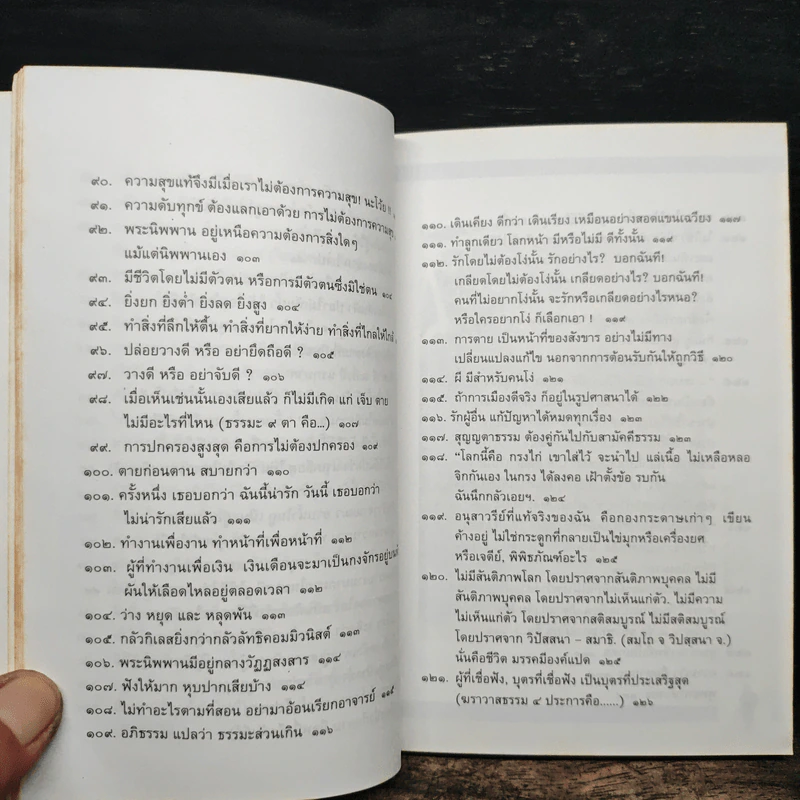 ๙๐. ความสุขแท้จึงมีเมื่อเราไม่ต้องการความสุข! นะโว้ย
๙๑. ความดับทุกข์ ต้องแลกเอาด้วย การไม่ต้องการความสุข
๙๒. พระนิพพาน อยู่เหนือความต้องการสิ่งใดๆ
แม้แต่นิพพานเอง ๑๐๓
๙๓. มีชีวิตโดยไม่มีตัวตน หรือการมีตัวตนซึ่งมิใช่ตน ๑๐๔
๙๔. ยิ่งยก ยิ่งต่ำ ยิ่งลด ยิ่งสูง ๑๐๔
๙๕. ทำสิ่งที่ลึกให้ตื้น ทำสิ่งที่ยากให้ง่าย ทำสิ่งที่ไกลให้ใกล้
๙๖. ปล่อยวางดี หรือ อย่ายึดถือดี ? ๑๐๕
๙๗. วางดี หรือ อย่าจับดี ? ๑๐๖
๙๘. เมื่อเห็นเช่นนั้นเองเสียแล้ว ก็ไม่มีเกิด แก่ เจ็บ ตาย
ไม่มีอะไรที่ไหน (ธรรมะ ๙ ตา คือ...) ๑๐๗
๙๙. การปกครองสูงสุด คือการไม่ต้องปกครอง ๑๐๙
๑๐๐. ตายก่อนตาน สบายกว่า ๑๑๐
๑๐๑. ครั้งหนึ่ง เธอบอกว่า ฉันนี้น่ารัก วันนี้ เธอบอกว่า
ไม่น่ารักเสียแล้ว ๑๑๑
๑๐๒. ทำงานเพื่องาน ทำหน้าที่เพื่อหน้าที่ ๑๑๒
๑๐๓. ผู้ที่ทำงานเพื่อเงิน เงินเดือนจะมาเป็นกงจักรอยู่บน
ผันให้เลือดไหลอยู่ตลอดเวลา ๑๑๒
๑๐๔. ว่าง หยุด และ หลุดพ้น ๑๑๓
๑๐๕. กลัวกิเลสยิ่งกว่ากลัวลัทธิคอมมิวนิสต์ ๑๑๓
๑๐๖. พระนิพพานมีอยู่กลางวัฏฏสงสาร ๑๑๔
๑๐๗. ฟังให้มาก หุบปากเสียบ้าง ๑๑๔
๑๐๘. ไม่ทำอะไรตามที่สอน อย่ามาอ้อนเรียกอาจารย์ ๑๑๕
๑๐๙. อภิธรรม แปลว่า ธรรมะส่วนเกิน ๑๑๖
๑๑๐. เดินเคียง ดีกว่า เดินเรียง เหมือนอย่างสอดแขนเฉวียง ๑๑๗
๑๑๑. ทำลูกเดียว โลกหน้า มีหรือไม่มี ดีทั้งนั้น ๑๑๙
๑๑๒. รักโดยไม่ต้องโง่นั้น รักอย่างไร? บอกฉันที!
เกลียดโดยไม่ต้องโง่นั้น เกลียดอย่างไร? บอกฉันที!
คนที่ไม่อยากโง่นั้น จะรักหรือเกลียดอย่างไรหนอ?
หรือใครอยากโง่ ก็เลือกเอา ! ๑๑๙
๑๑๓. การตาย เป็นหน้าที่ของสังขาร อย่างไม่มีทาง
เปลี่ยนแปลงแก้ไข นอกจากการต้อนรับกันให้ถูกวิธี ๑๒๐
๑๑๔. ผี มีสำหรับคนโง่ ๑๒๑
๑๑๕. ถ้าการเมืองดีจริง ก็อยู่ในรูปศาสนาได้ ๑๒๒
๑๑๖. รักผู้อื่น แก้ปัญหาได้หมดทุกเรื่อง ๑๒๓
๑๑๗. สุญญตาธรรม ต้องคู่กันไปกับสามัคคีธรรม ๑๒๓
๑๑๘. "โลกนี้คือ กรงไก่ เขาใส่ไว้ จะนำไป แล่เนื้อ ไม่เหลือหลอ
จิกกันเอง ในกรง ได้ลงคอ เฝ้าตั้งข้อ รบกัน
ฉันนึกกลัวเอยฯ. ๑๒๔
๑๑๙. อนุสาวรีย์ที่แท้จริงของฉัน คือกองกระดาษเก่าๆ เขียน
ค้างอยู่ ไม่ใช่กระดูกที่กลายเป็นไข่มุกหรือเครื่องยศ
หรือเจดีย์, พิพิธภัณฑ์อะไร ๑๒๕
๑๒๐. ไม่มีสันติภาพโลก โดยปราศจากสันติภาพบุคคล ไม่มี
สันติภาพบุคคล โดยปราศจากไม่เห็นแก่ตัว. ไม่มีความ
ไม่เห็นแก่ตัว โดยปราศจากสติสมบูรณ์ ไม่มีสติสมบูรณ์
โดยปราศจาก วิปัสสนา – สมาธิ. (สมโถ จ วิปสฺสนา จ.)
นั่นคือชีวิต มรรคมีองค์แปด ๑๒๕
๑๒๑. ผู้ที่เชื่อฟัง, บุตรที่เชื่อฟัง เป็นบุตรที่ประเสริฐสุด
(ฆราวาสธรรม ๔ ประการคือ......) ๑๒๖